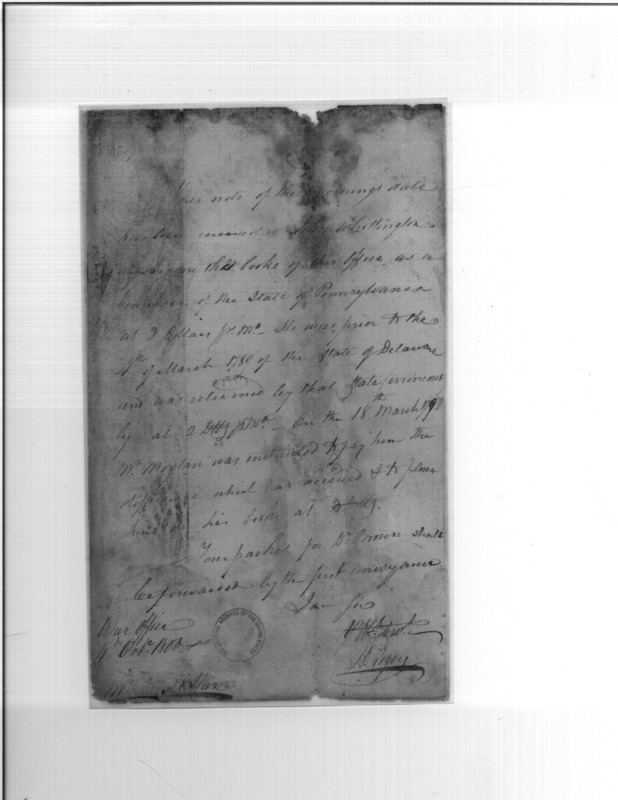 note of this morning's date
has been received John Whittington
on the books of this Office, as a
of the State of Pennsylvania
at 3 Dollars pr. Mo. He was, prior to the
4th of March 1789 of the State of Delaware
and was returned by that State, erroneous
ly at 2 pr. Mo. On the 18th March 1798
Mr. Moylan was instructed to pay him the
difference which had accrued & to place
him on his books at
Your packet for Dr. Brown shall
be forwarded by the first conveyance
I am Sir
War Office
4th Octr. 1800